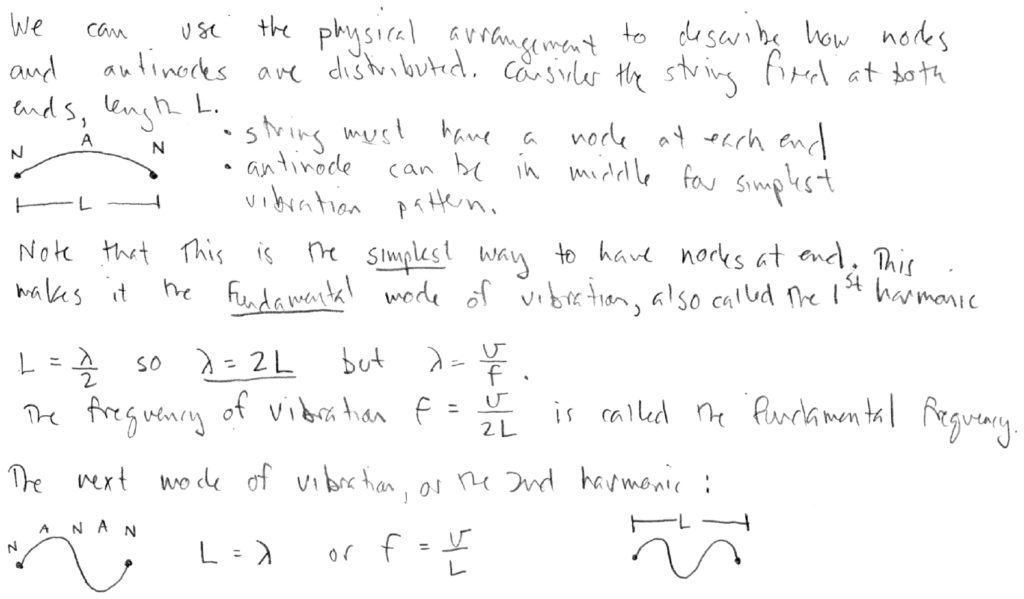 We can use the physical arrangement to describe how nodes
and antinodes are distributed. Consider the string fixed at both
ends, length L.
N A N
L
• string must have a node at each end
• antinode can be in middle for simplest
vibration pattern.
Note that this is the simplest way to have nodes at end. This
makes it the Fundamental mode of vibration, also called the 1st harmonic
L = λ/2 so λ = 2L but λ = v/f.
The frequency of vibration f = v/2L is called the fundamental frequency.
The next mode of vibration, or the 2nd harmonic :
N A N A N
L = λ or f = v/L
L